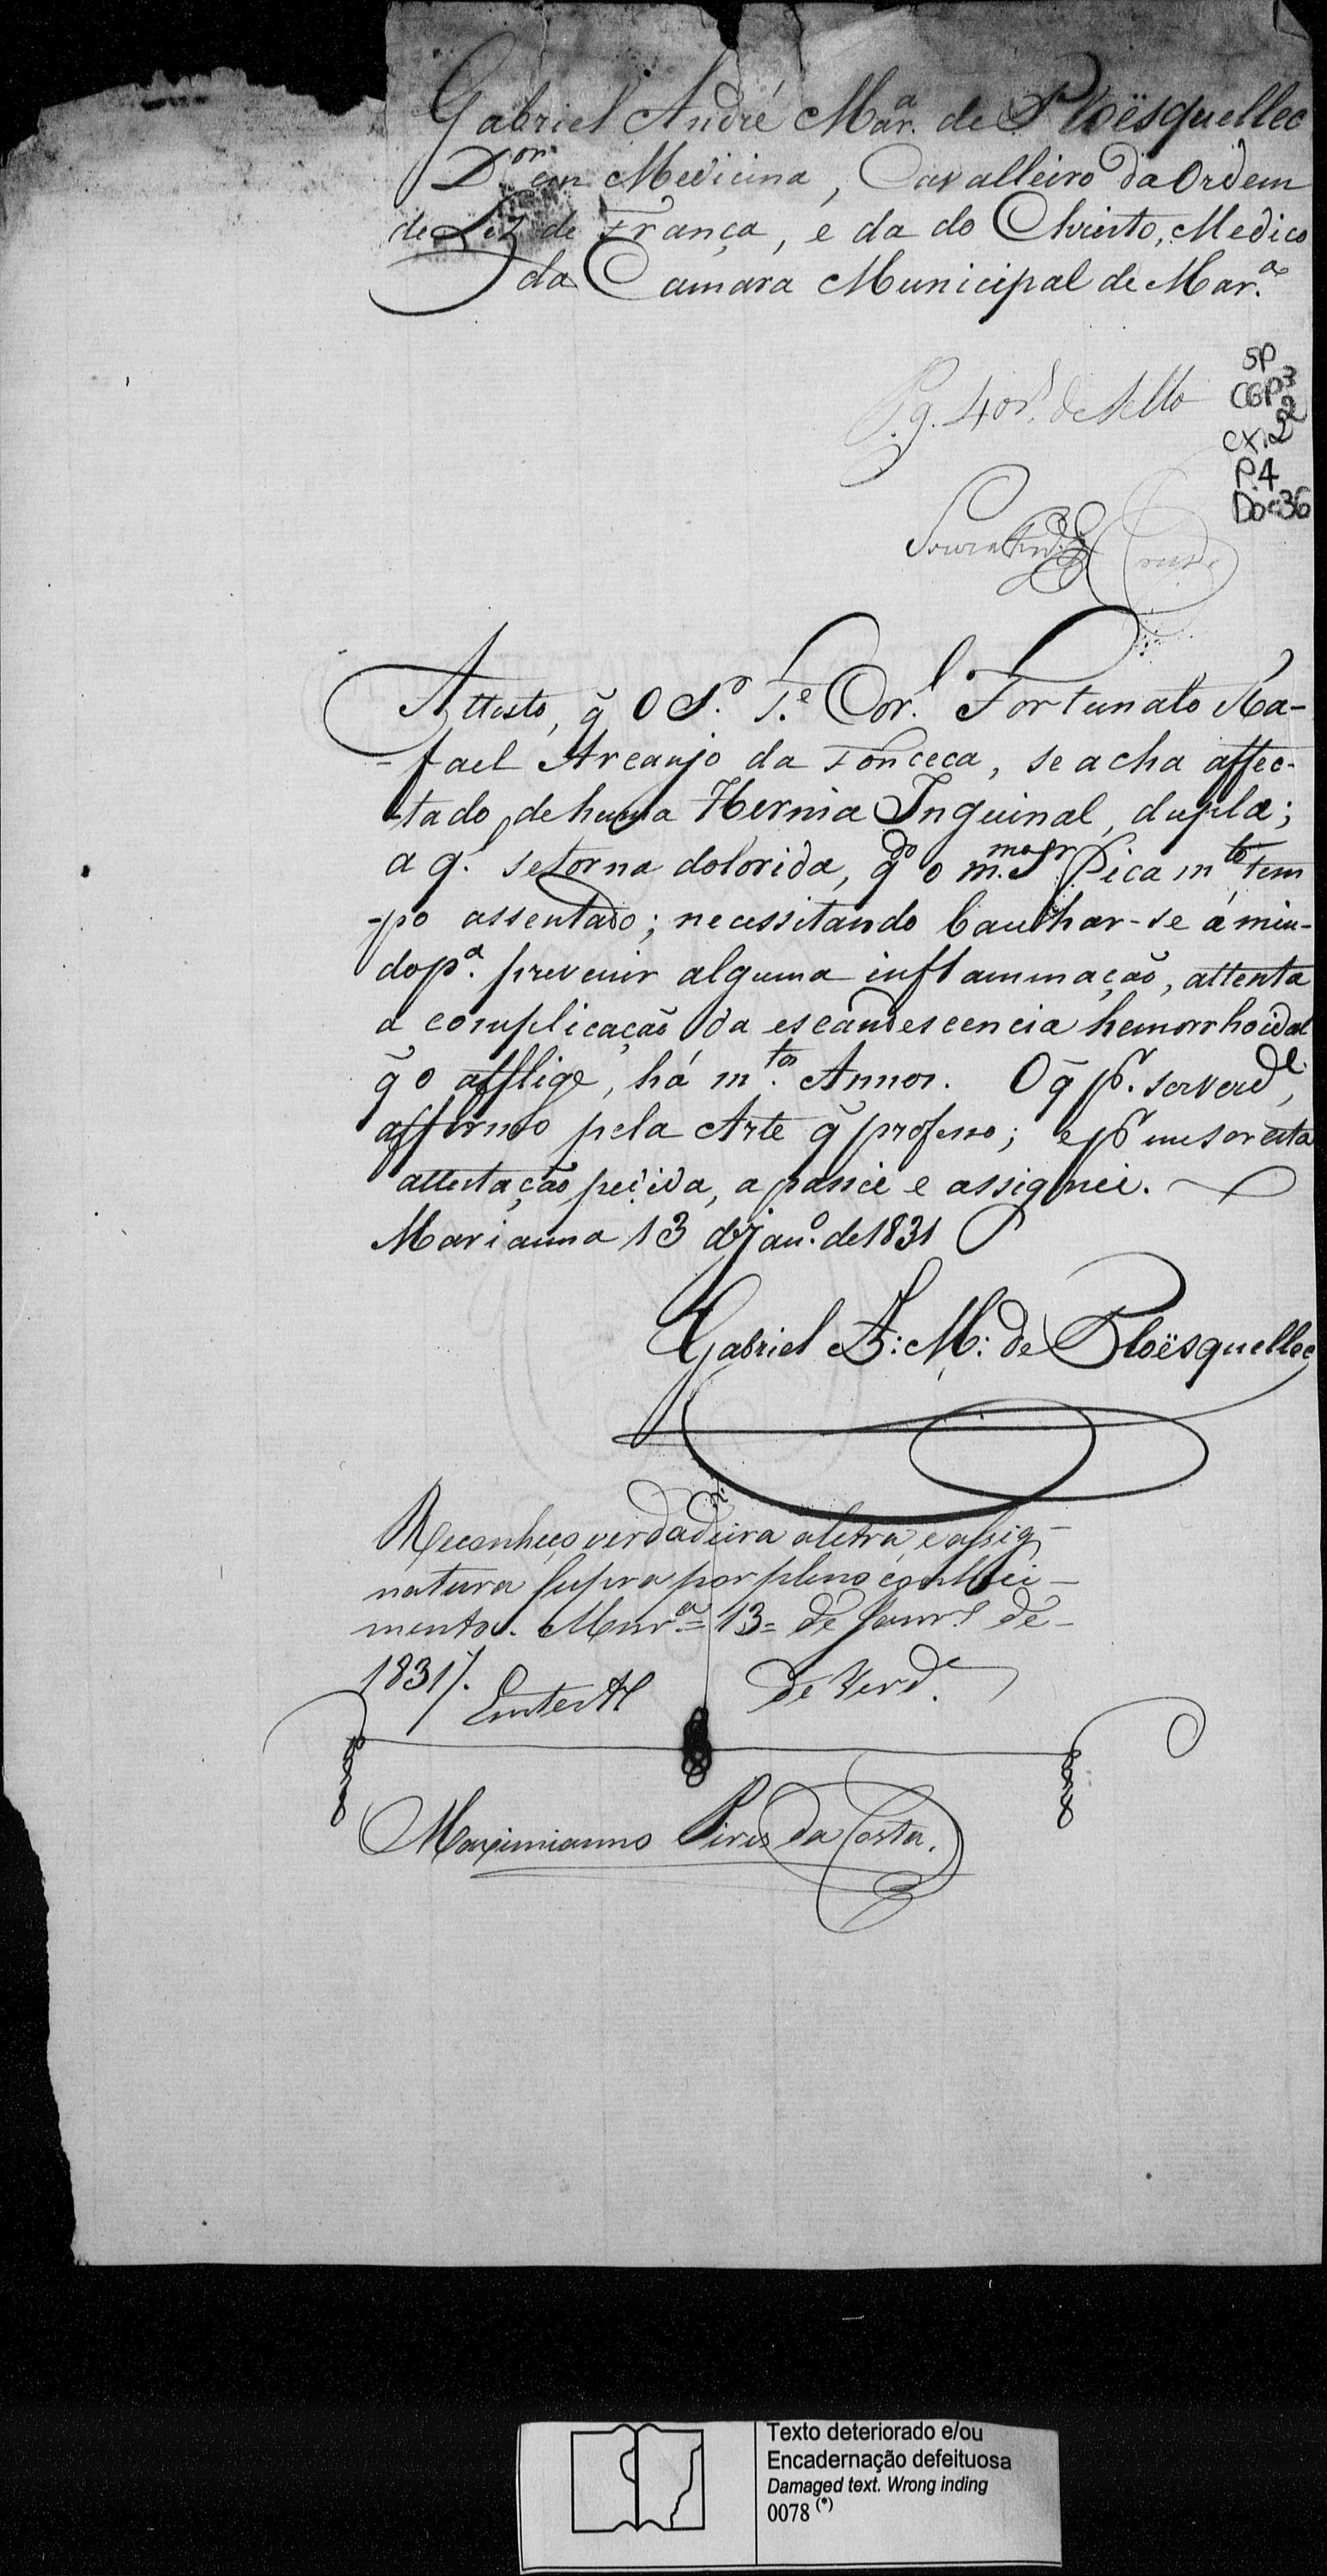 Gabriel André Mar.ª de Ploësquellec
D.or em Medicina, Cavalleiro da Ordem
de Liz de França, e da do Christo, Medico
da Camara Municipal de Mar.ª
SP
CGP3
CX.22
P.4
Doc36
Pg. 40r.s de Sello
Attesto, q̃ O S.r T.e Cor.l Fortunato Ra-
-fael Arcanjo da Fonceca, se acha affec-
-tado de huma Hernia Inguinal, dupla;
a q.l se torna dolorida, q.do o m.mo Sr. Fica m.to tem
-po assentado; necessitando banhar-se á miu-
do p.ª prevenir alguma inflammação, attenta
a complicação da escandescencia hemorrhoidal
q̃ o afflige, há m.tos Annos. O q̃ p.r ser verd.e,
affirmo pela Arte q̃ professo; e p.r me ser esta
attestação pedida, a passei e assignei.
Marianna 13 de Jan.o de 1831
Gabriel A: M: de Ploësquellec
Reconheço verdadeira a letra, e assig-
natura supra por pleno conheci-
mento. Mar.ª = 13 = de Janr.o de
1831 /.
de Verd.e
Maximianno Pires da Costa.
Texto deteriorado e/ou
Encadernação defeituosa
Damaged text. Wrong inding
0078 (*)